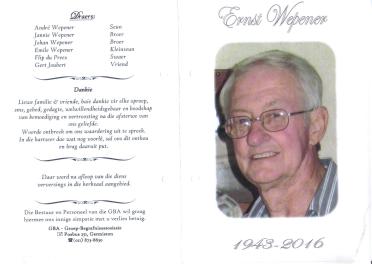 Draers:
André Wepener Seun
Jannie Wepener Broer
Johan Wepener Broer
Emile Wepener Kleinseun
Flip du Preez Swaer
Gert Joubert Vriend
Dankie
Liewe familie & vriende, baie dankie vir elke oproep,
sms, gebed, gedagte, welwillendheidsgebaar en boodskap
van bemoediging en vertroosting na die afsterwe van
ons geliefde.
Woorde ontbreek om ons waardering uit te spreek.
In die hartseer dae wat nog voorlê, sal ons dit onthou
en krag daaruit put.
Daar word na afloop van die diens
verversings in die kerksaal aangebied.
Die Bestuur en Personeel van die GBA wil graag
hiermee ons innige simpatie met u verlies betuig.
GBA - Groep-Begrafnisassosiasie
Posbus 251, Germiston
(011) 873-8850
Ernst Wepener
1943-2016